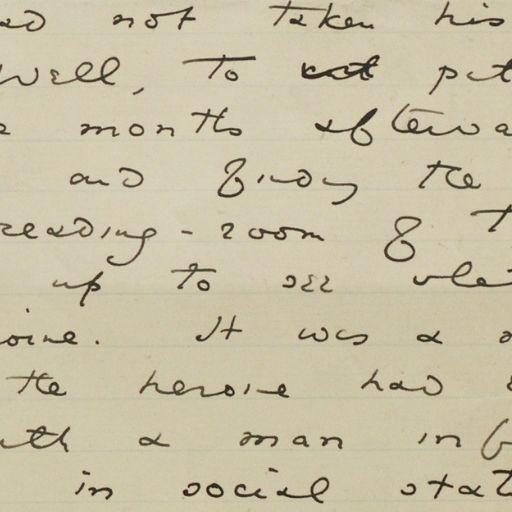 ad not taken his
Well, to put
months afterwa
and finding the
reading-room of t
up to see
oine. It was a
the heroine had
ith a man inf
in social stat